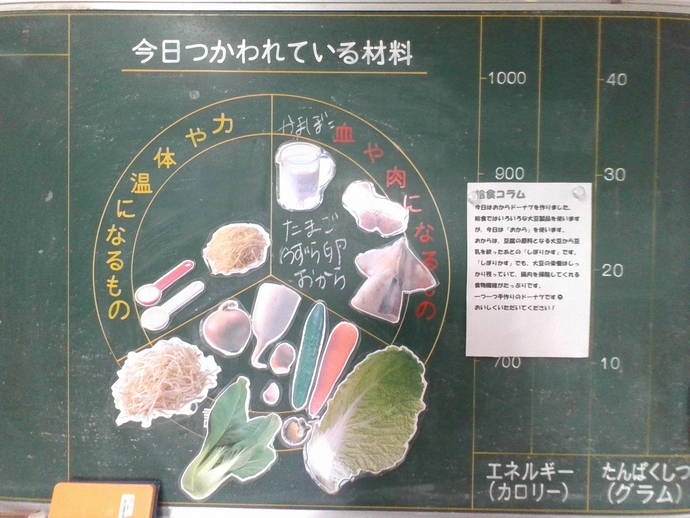 今日つかわれている材料
力や体温になるもの
血や肉になるもの
かまぼこ
たまご
うずら卵
おから
1000
900
700
40
30
20
10
エネルギー
(カロリー)
たんぱくしつ
(グラム)
給食コラム
今日はおからドーナツを作りました。
給食ではいろいろな大豆製品を使います
が、今日は「おから」を使います。
おからは、豆腐の原料となる大豆から豆
乳を絞ったあとの「しぼりかす」です。
「しぼりかす」でも、大豆の栄養はしっ
かり残っていて、腸内を掃除してくれる
食物繊維がたっぷりです。
一つ一つ手作りのドーナツです☺
おいしくいただいてください!